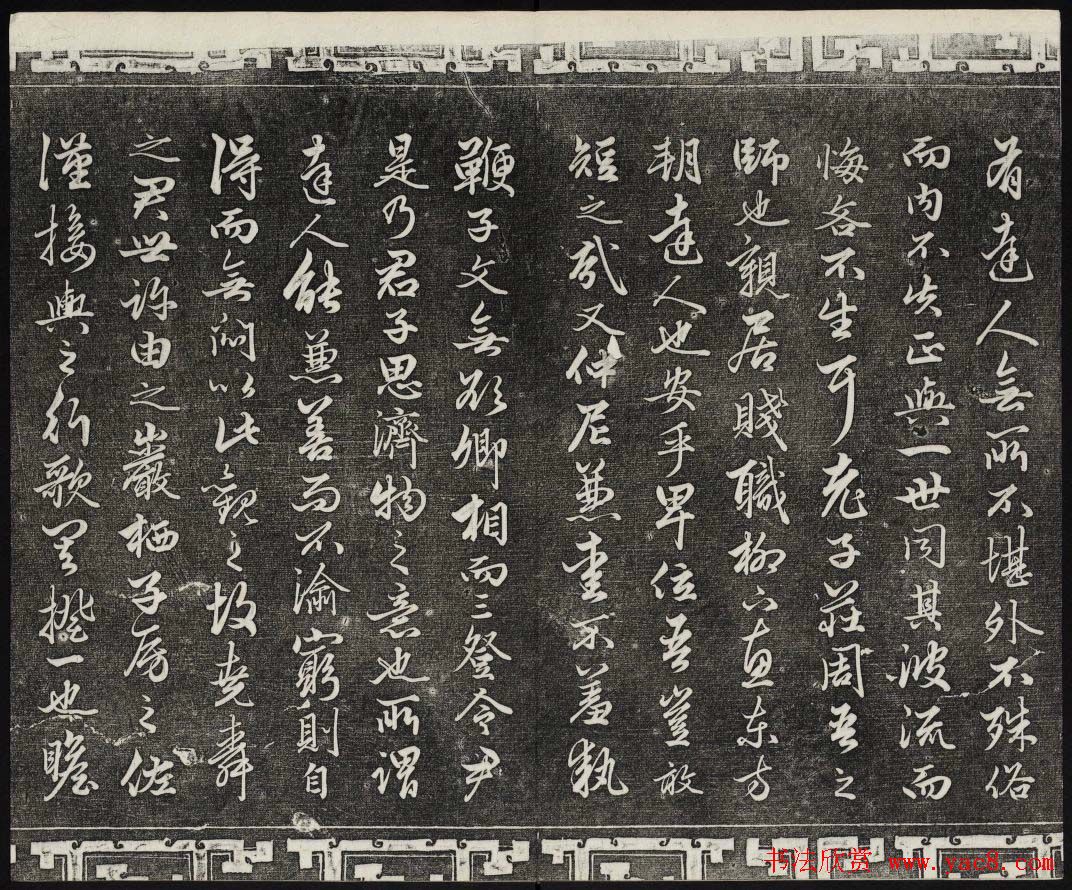 有達人無所不堪外不殊俗
而内不失正與一世同其波流而
悔吝不生耳老子莊周吾之
師也親居賤職柳下惠東方
朔達人也安乎卑位吾豈敢
短之哉又仲尼兼愛不羞執
鞭子文無欲卿相而三登令尹
是乃君子思濟物之意也所謂
達人能兼善而不渝窮則自
得而無悶以此觀之故堯舜
之君世許由之巖栖子房之佐
漢接輿之行歌其揆一也瞻
书法欣赏 www.yac8.com